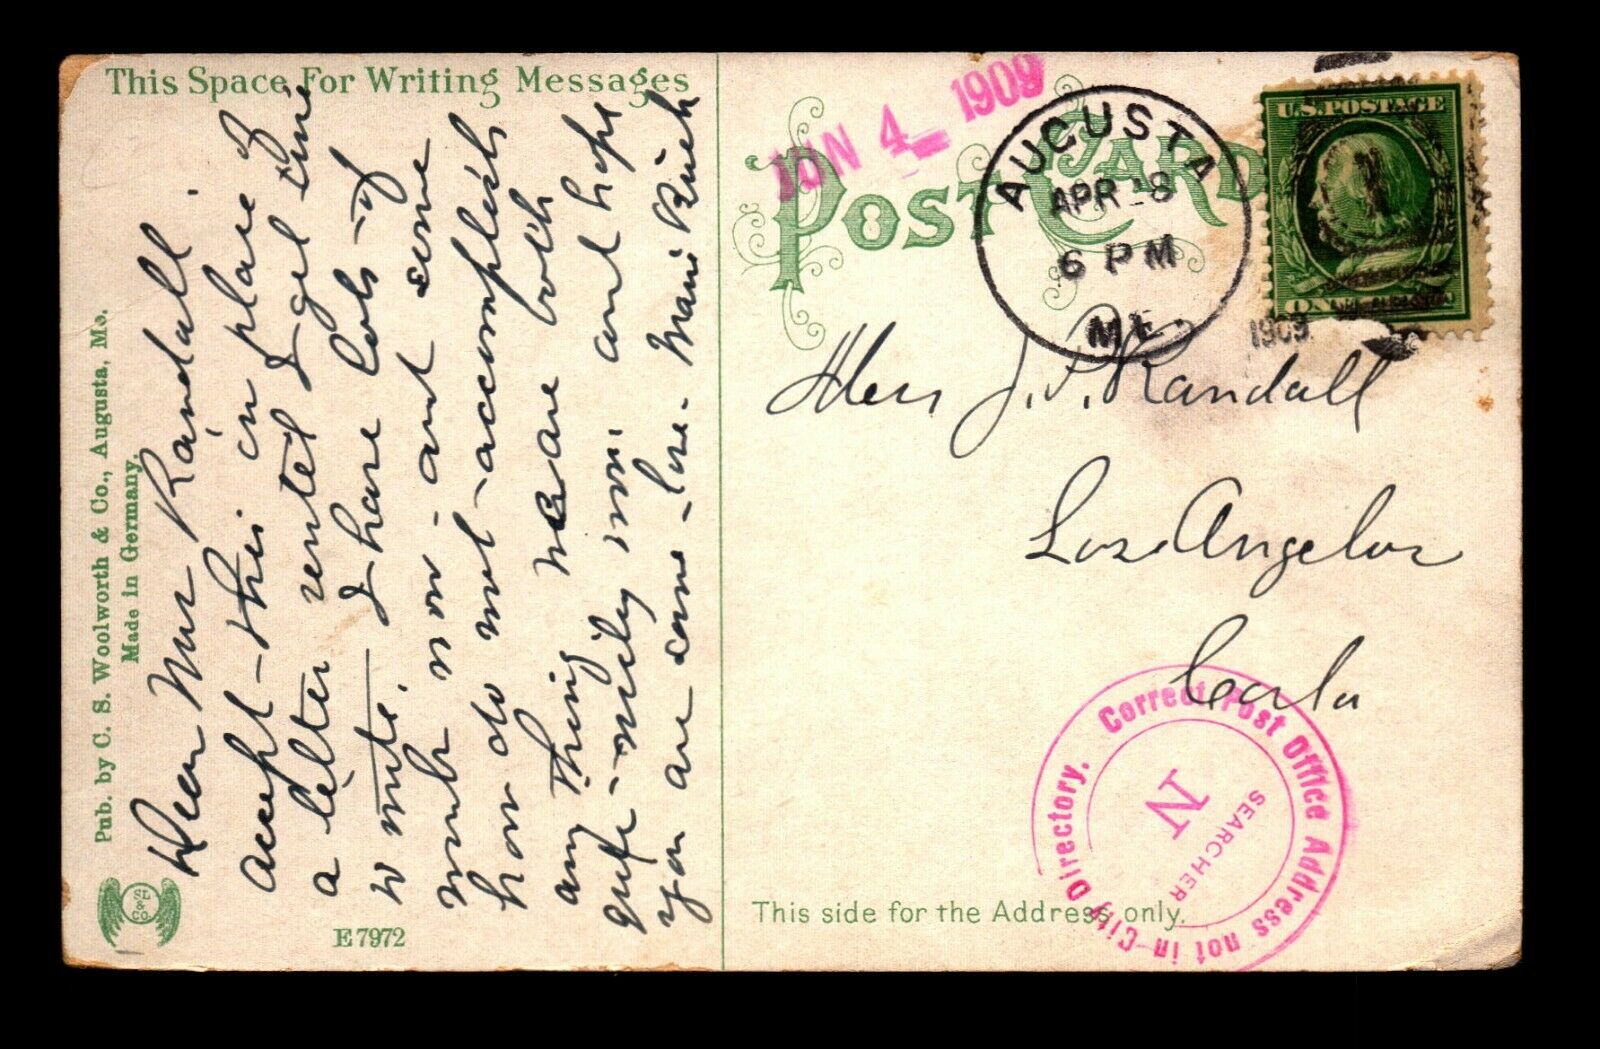 This Space For Writing Messages
Dear Mrs Randall
accept this in place of
a letter until I get time
to write. I have lots of
work now and some
how do not accomplish
any thing We are both
quite well now and hope
you are same - love -
Pub. by C. S. Woolworth & Co., Augusta, Me.
Made in Germany.
SL
&
CO.
E 7972
JUN 4 1909
POST CARD
AUGUSTA
APR 28
6 PM
ME.
1909
U.S. POSTAGE
ONE
Mrs J. P. Randall
Los Angelos
Cala
Correct Post Office Address not in City Directory.
SEARCHER
N
This side for the Address only.